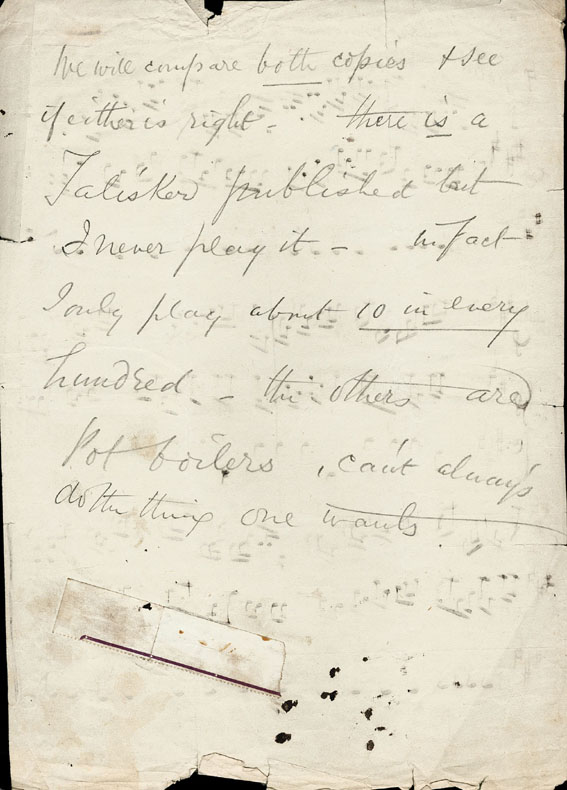 We will compare both copies & see
if either is right - there is a
Talisker published but
I never play it - in fact
I only play about 10 in every
hundred - the others are
Pot boilers, can't always
do the thing one wants